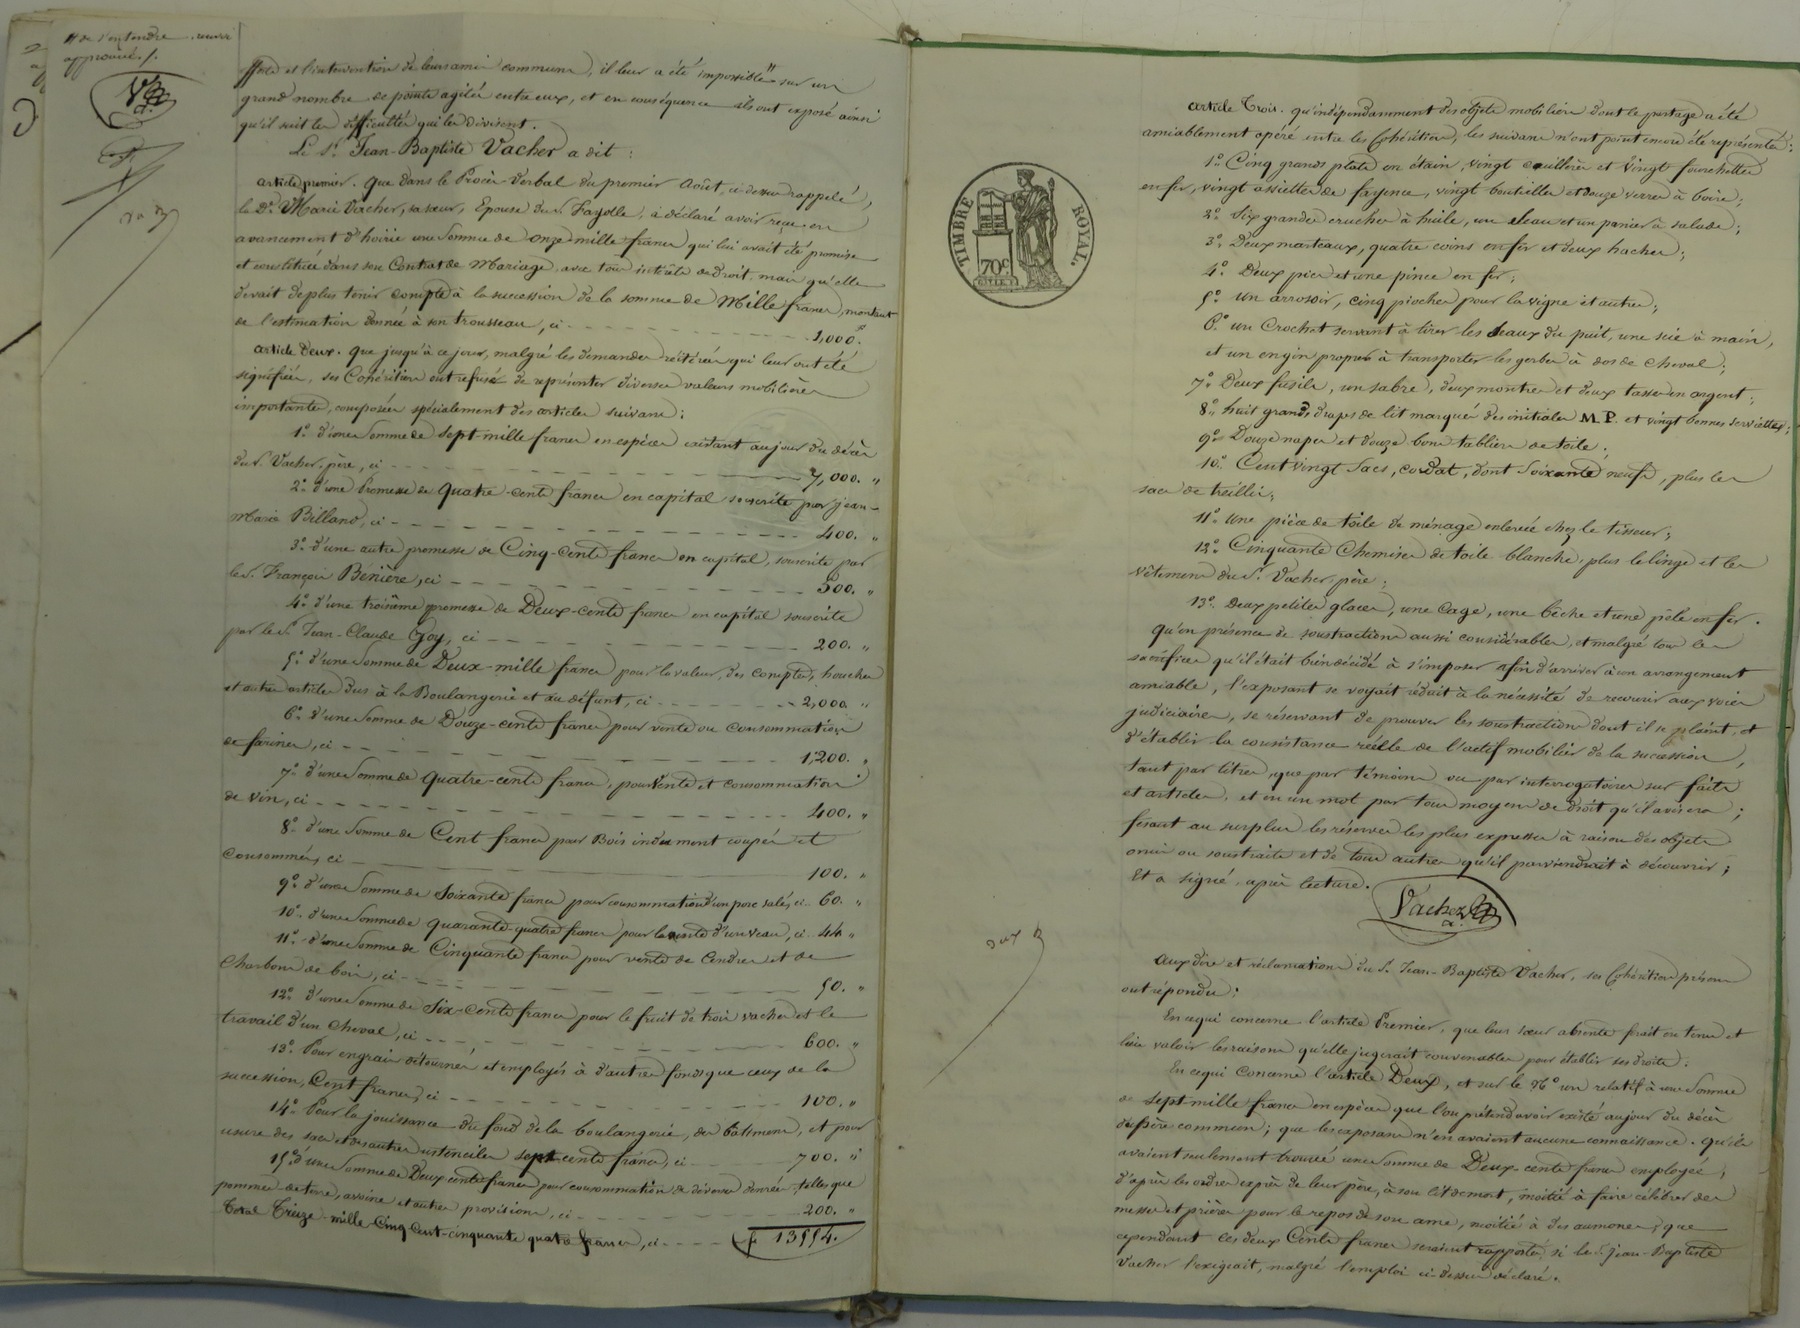 # de s'entendre. renvoi
approuvé./.
V
efforts et l'intervention de leurs amis communs, il leur a été impossible # sur un
grand nombre de points agités entre eux, et en conséquence ils ont exposé ainsi
qu'il suit les difficultés qui les divisent.
Le Sr. Jean-Baptiste Vacher a dit :
article premier. Que dans le Procès-Verbal du premier Août, ci-dessus rappelé,
la De. Marie Vacher, sa sœur, Epouse du Sr. Fayolle, a déclaré avoir reçu en
avancement d'hoirie une Somme de onze-mille francs qui lui avait été promise
et constituée dans son Contrat de Mariage, avec tous intérêts de Droit. mais qu'elle
devait de plus tenir compte à la succession de la somme de Mille francs, montant
de l'estimation donnée à son trousseau, ci - - - 1,000.f
article Deux. que jusqu'à ce jour, malgré les demandes réitérées qui leur ont été
signifiées, ses Cohéritiers ont refusé de représenter diverses valeurs mobilières
importantes, composées spécialement des articles suivans :
1.° d'une Somme de Sept-mille francs en espèces existant au jour du décès
du S. Vacher, père, ci - - - 7,000. "
2.° d'une Promesse de quatre-cents francs en capital souscrite par Jean-
Marie Billand, ci - - - 400. "
3.° d'une autre promesse de Cinq-cents francs en capital, souscrite par
le S. François Bénière, ci - - - 500. "
4.° d'une troisième promesse de Deux-cents francs en capital souscrite
par le S. Jean-Claude Goy, ci - - - 200. "
5.° d'une Somme de Deux-mille francs pour la valeur des comptes, hoches
et autres articles dus à la Boulangerie et au défunt, ci - - - 2,000. "
6.° d'une Somme de Douze-cents francs pour vente ou Consommation
de farines, ci - - - 1,200. "
7.° d'une Somme de quatre-cents francs, pour Vente et consommation
de vin, ci - - - 400. "
8.° d'une Somme de Cent francs pour Bois indument coupés et
Consommés, ci - - - 100. "
9.° d'une Somme de Soixante francs pour consommation d'un porc salé, ci - 60. "
10.° d'une Somme de quarante-quatre francs pour la vente d'un veau, ci - 44 "
11.° d'une Somme de Cinquante francs pour vente de Cendres et de
Charbons de bois, ci - - - 50. "
12.° d'une Somme de Six-cents francs pour le fruit de trois vaches et le
travail d'un Cheval, ci - - - 600. "
13.° Pour engrais détournés et employés à d'autres fonds que ceux de la
succession, Cent francs, ci - - - 100. "
14.° Pour la jouissance du fonds de la boulangerie, des bâtimens, et pour
usure des sacs et des autres ustenciles sept cents francs, ci - - - 700. "
15.° d'une Somme de Deux cents francs pour consommation de diverses denrées, telles que
pommes-de-terre, avoine et autres provisions, ci - - - 200. "
Total Treize-mille Cinq Cent-cinquante quatre francs, ci - - - f 13554.
TIMBRE ROYAL.
70c
article Trois. qu'indépendamment des objets mobiliers dont le partage a été
amiablement opéré entre les Cohéritiers, les suivans n'ont point encore été représentés :
1.° Cinq grands plats en étain, vingt cuillères et Vingt fourchettes
en fer, vingt assiettes de fayence, vingt bouteilles et douze verres à boire ;
2.° Six grandes cruches à huile, un Seau et un panier à salade ;
3.° Deux marteaux, quatre coins en fer et deux haches ;
4.° Deux pics et une pince en fer ;
5.° un arrosoir, cinq pioches pour la vigne et autres ;
6.° un Crochet servant à tirer les Seaux du puit, une scie à main,
et un engin propre à transporter les gerbes à dos de Cheval ;
7.° Deux fusils, un sabre, deux montres et deux tasses en argent ;
8.° huit grands draps de lit marqués des initiales M P. et vingt bonnes serviettes ;
9.° Douze napes et douze bons tabliers de toile.
10.° Cent vingt Sacs, coudat, dont Soixante neufs, plus les
sacs de treillis ;
11.° une pièce de toile de ménage enlevée chez le tisseur ;
12.° Cinquante Chemises de toile blanche, plus le linge et les
vêtemens du S. Vacher, père ;
13.° Deux petites glaces, une cage, une bêche et une pêle en fer.
Qu'en présence de soustractions aussi considérables, et malgré tous les
sacrifices qu'il était bien décidé à s'imposer afin d'arriver à un arrangement
amiable, l'exposant se voyait réduit à la nécessité de recourir aux voies
judiciaires, se réservant de prouver les soustractions dont il se plaint, et
d'établir la consistance réelle de l'actif mobilier de la succession,
tant par titres, que par témoins ou par interrogatoires sur faits
et articles, et en un mot par tous moyens de droit qu'il avisera ;
fesant au surplus les réserves les plus expresses à raison des objets
omis ou soustraits et de tous autres qu'il parviendrait à découvrir ;
Et a signé, après lecture.
Vacher
Aux dire et réclamations du S. Jean-Baptiste Vacher, ses Cohéritiers présens
ont répondu :
En ce qui concerne l'article Premier, que leur sœur absente ferait en tems et
lieu valoir les raisons qu'elle jugerait convenables pour établir ses droits :
En ce qui Concerne l'article Deux, et sur le N.° un relatif à une Somme
de Sept-mille francs en espèces que l'on prétend avoir existé au jour du décès
du père commun ; que les exposans n'en avaient aucune connaissance. Qu'ils
avaient seulement trouvé une Somme de Deux-cents francs employée,
d'après les ordres exprès de leur père, à son lit de mort, moitié à faire célébrer des
messes et prières pour le repos de son ame, moitié à des aumones ; que
cependant ces deux Cents francs seraient rapportés si le S. Jean-Baptiste
Vacher l'exigeait, malgré l'emploi ci-dessus déclaré.